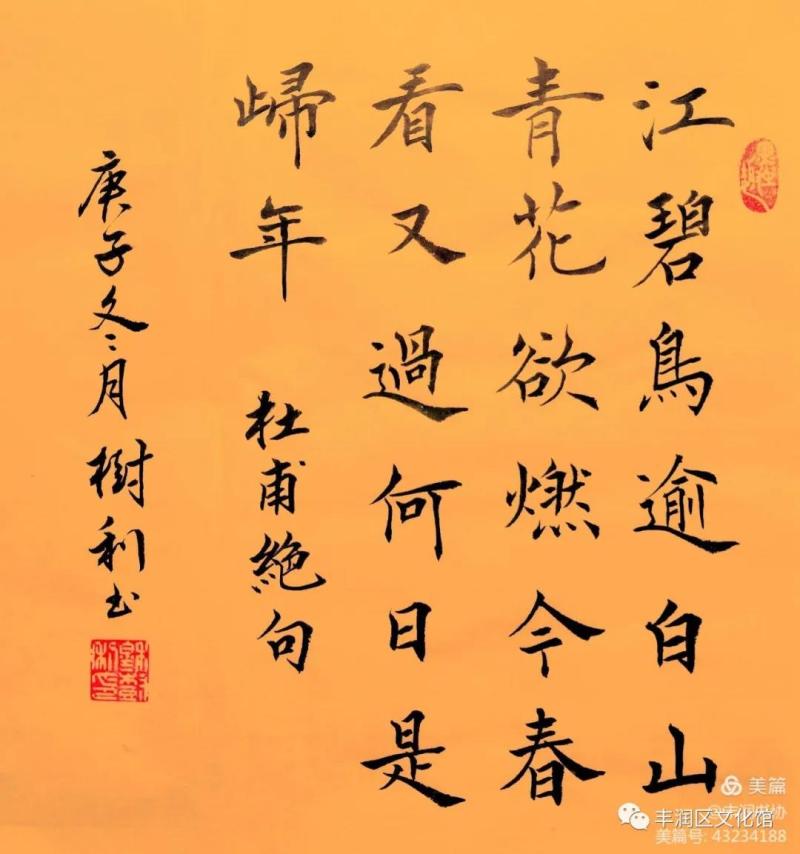 江碧鳥逾白山
青花欲燃今春
看又過何日是
歸年
杜甫絕句
庚子冬月樹利书
美篇
@丰润书协
丰润区文化馆
美篇号: 43234188